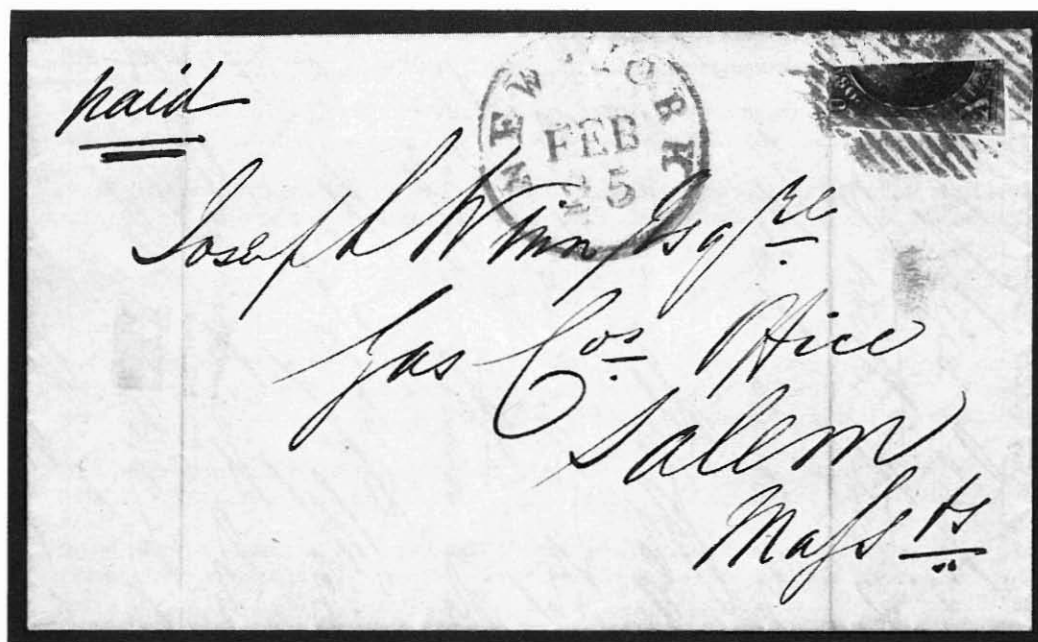 paid
NEW YORK
FEB
25
Joseph Winn Esqre
Gas Cos. Office
Salem
Massts